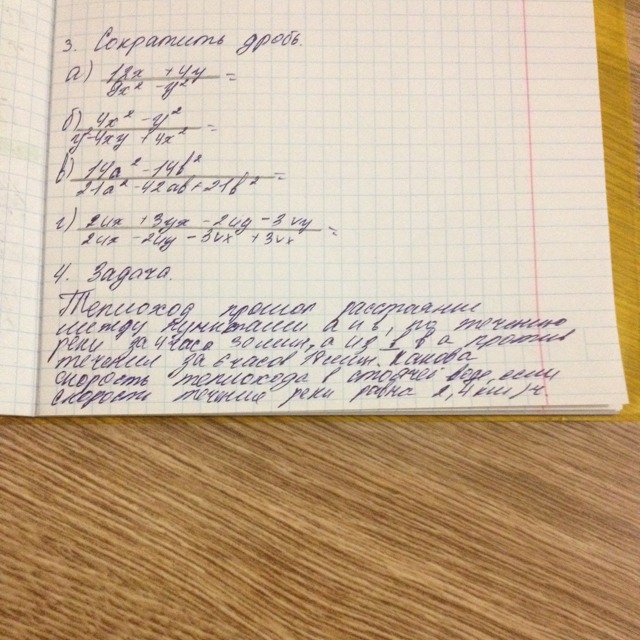 3. Сократить дробь.
а) 12x + 4y =
9x² - y²
б) 4x² - y² =
y - 4xy + 4x²
в) 14a² - 14b² =
21a² - 42ab + 21b²
г) 2ux + 3yx - 2uy - 3vy =
2ux - 2uy - 3vx + 3vx
4. Задача.
Теплоход прошол расстояние
между пунктами а и в, по течению
реки за 4 часа 30 мин, а из в в а против
течения за 6 часов мин. Какова
скорость теплохода в стоячей воде, если
скорость течение реки равна 2,4 км/ч